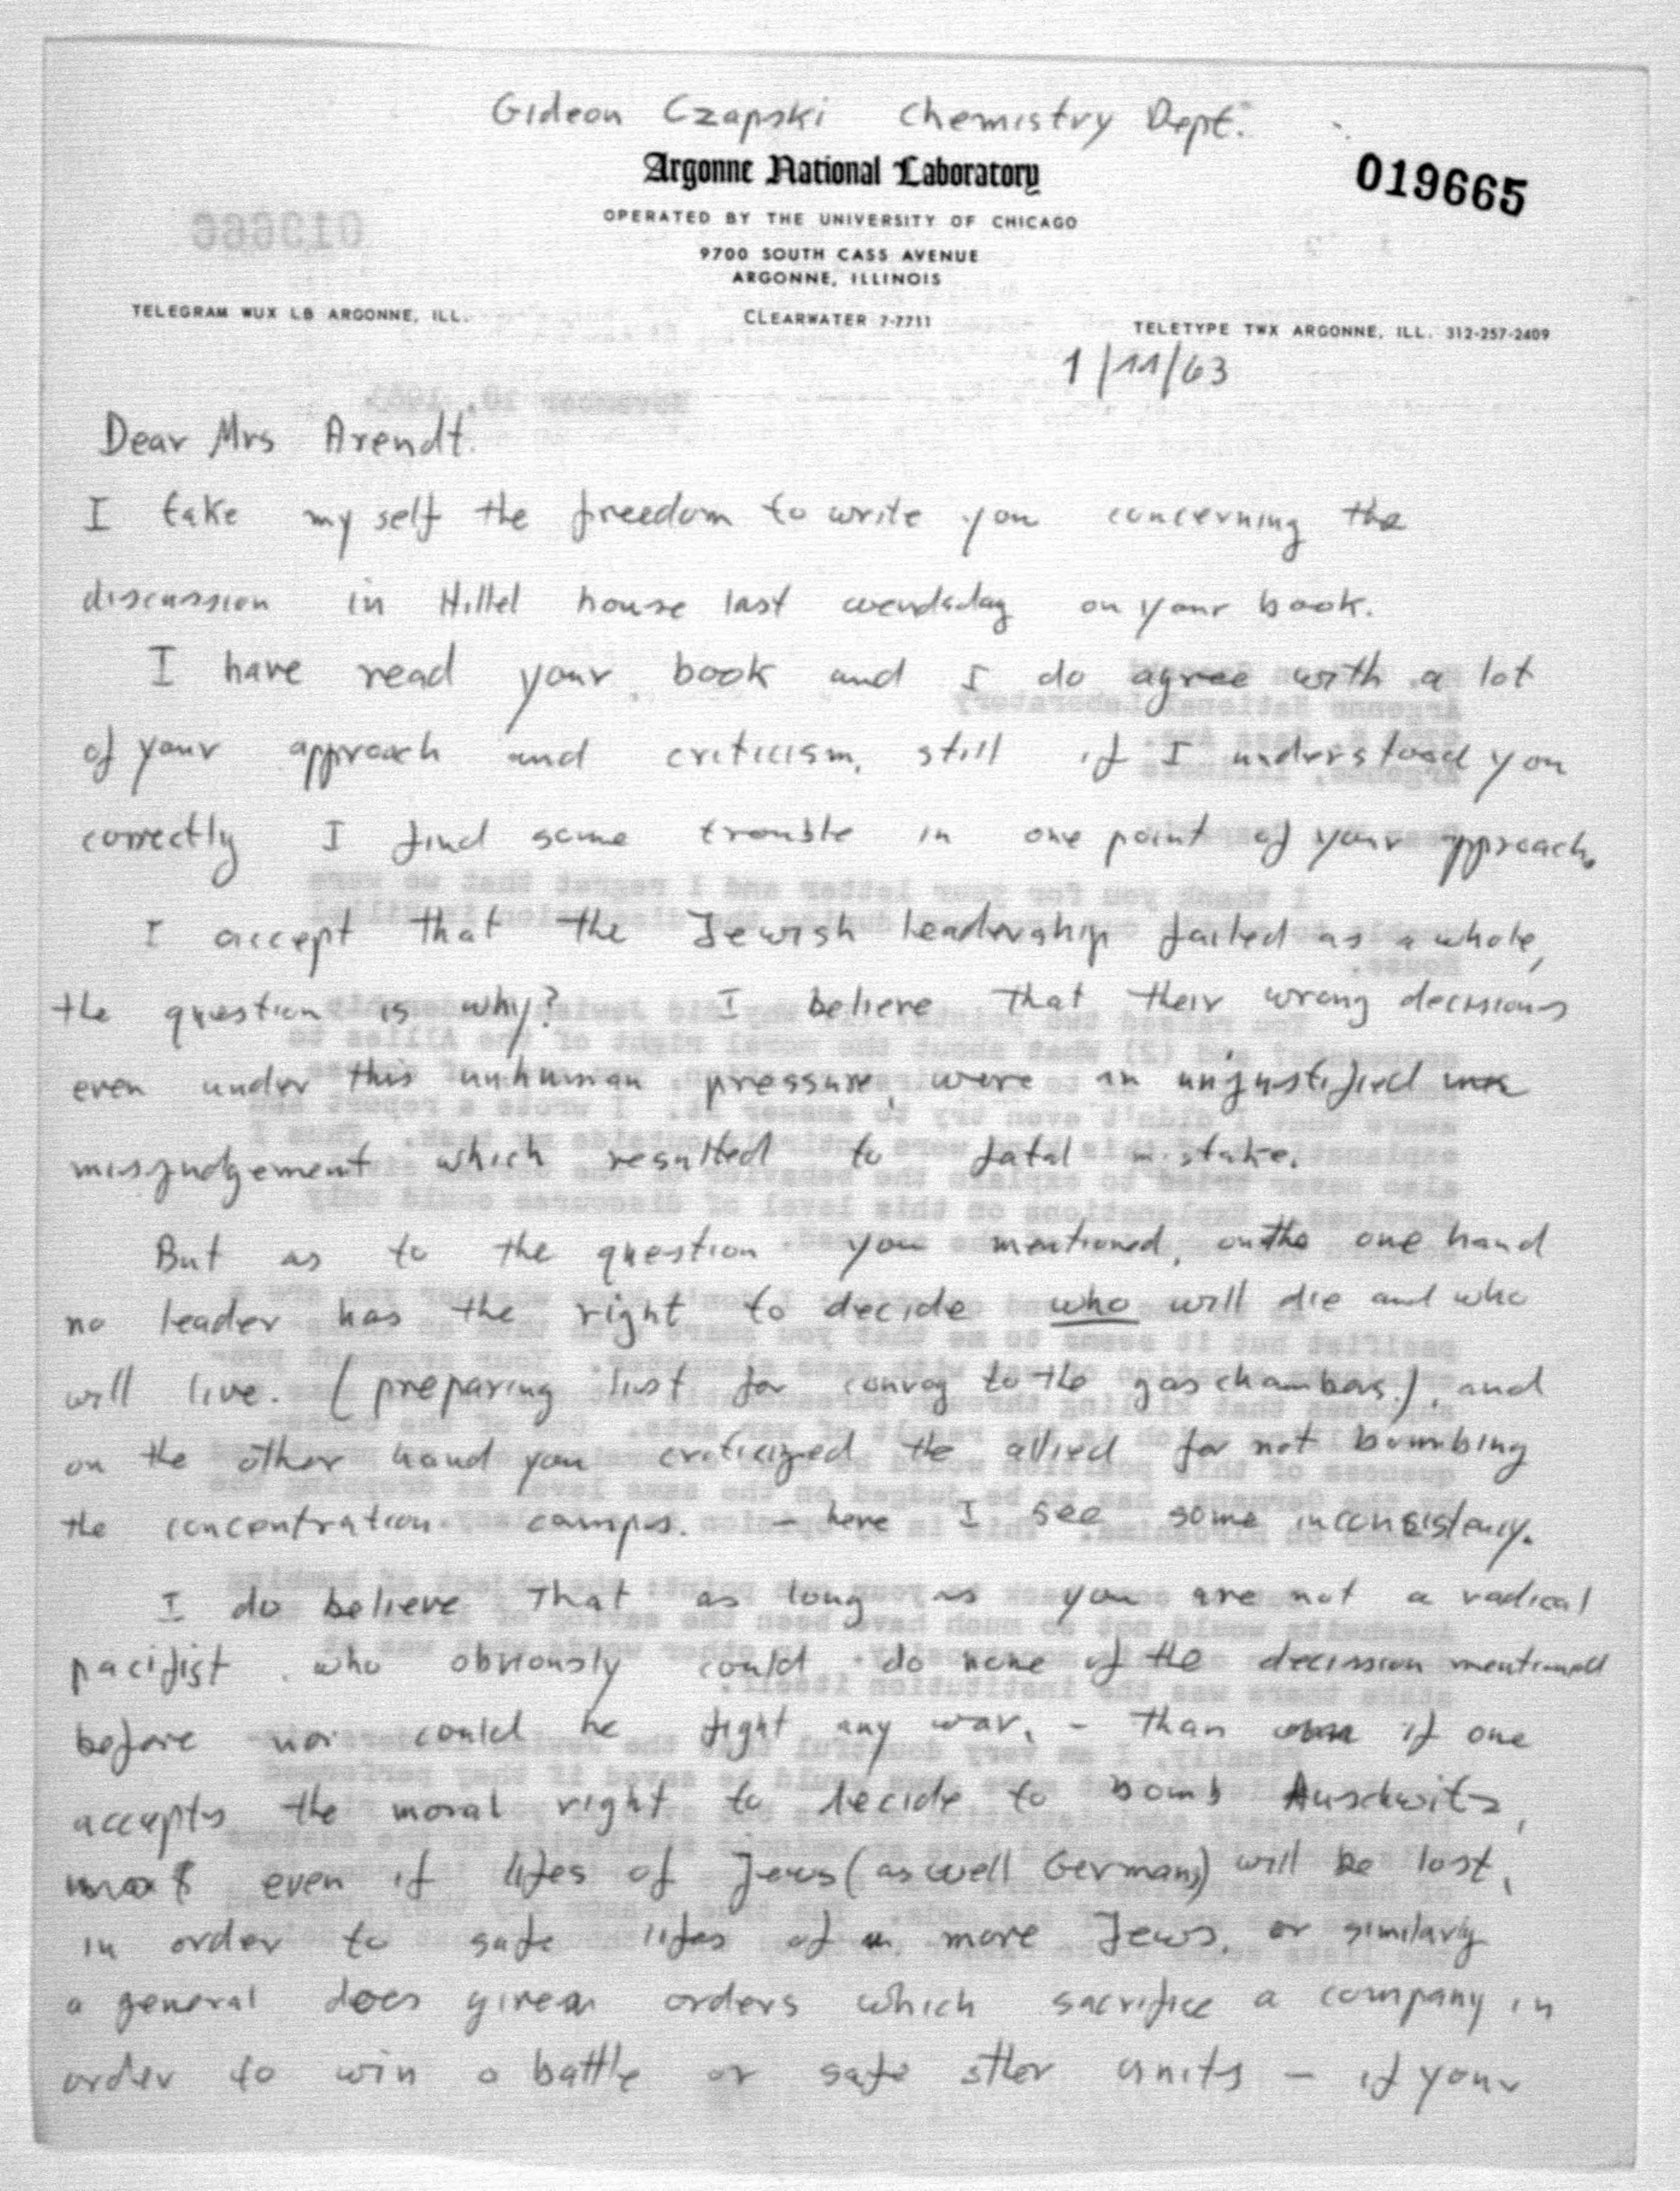 Gideon Czapski Chemistry Dept.
Argonne National Laboratory
019665
OPERATED BY THE UNIVERSITY OF CHICAGO
9700 SOUTH CASS AVENUE
ARGONNE, ILLINOIS
TELEGRAM WUX LB ARGONNE, ILL.
CLEARWATER 7-7711
TELETYPE TWX ARGONNE, ILL. 312-257-2409
1/11/63
Dear Mrs Arendt.
I take my self the freedom to write you concerning the
discussion in Hillel house last wendsday on your book.
I have read your book and I do agree with a lot
of your approach and criticism, still if I understood you
correctly I find some trouble in one point of your approach.
I accept that the Jewish leadership failed as a whole,
the question is why? I believe that their wrong decisions
even under this unhuman pressure, were an unjustified
misjudgement which resulted to fatal mistake.
But as to the question you mentioned, on the one hand
no leader has the right to decide who will die and who
will live. (preparing list for convoy to the gas chambers.), and
on the other hand you criticized the allied for not bombing
the concentration camps. - here I see some inconsistency.
I do believe that as long as you are not a radical
pacifist who obviously could do none of the decission mentioned
before nor could he fight any war, - than if one
accepts the moral right to decide to bomb Auschwitz,
even if lifes of Jews (as well Germans) will be lost,
in order to safe lifes of more Jews, or similarly
a general does given orders which sacrifice a company in
order to win a battle or safe other units - if your